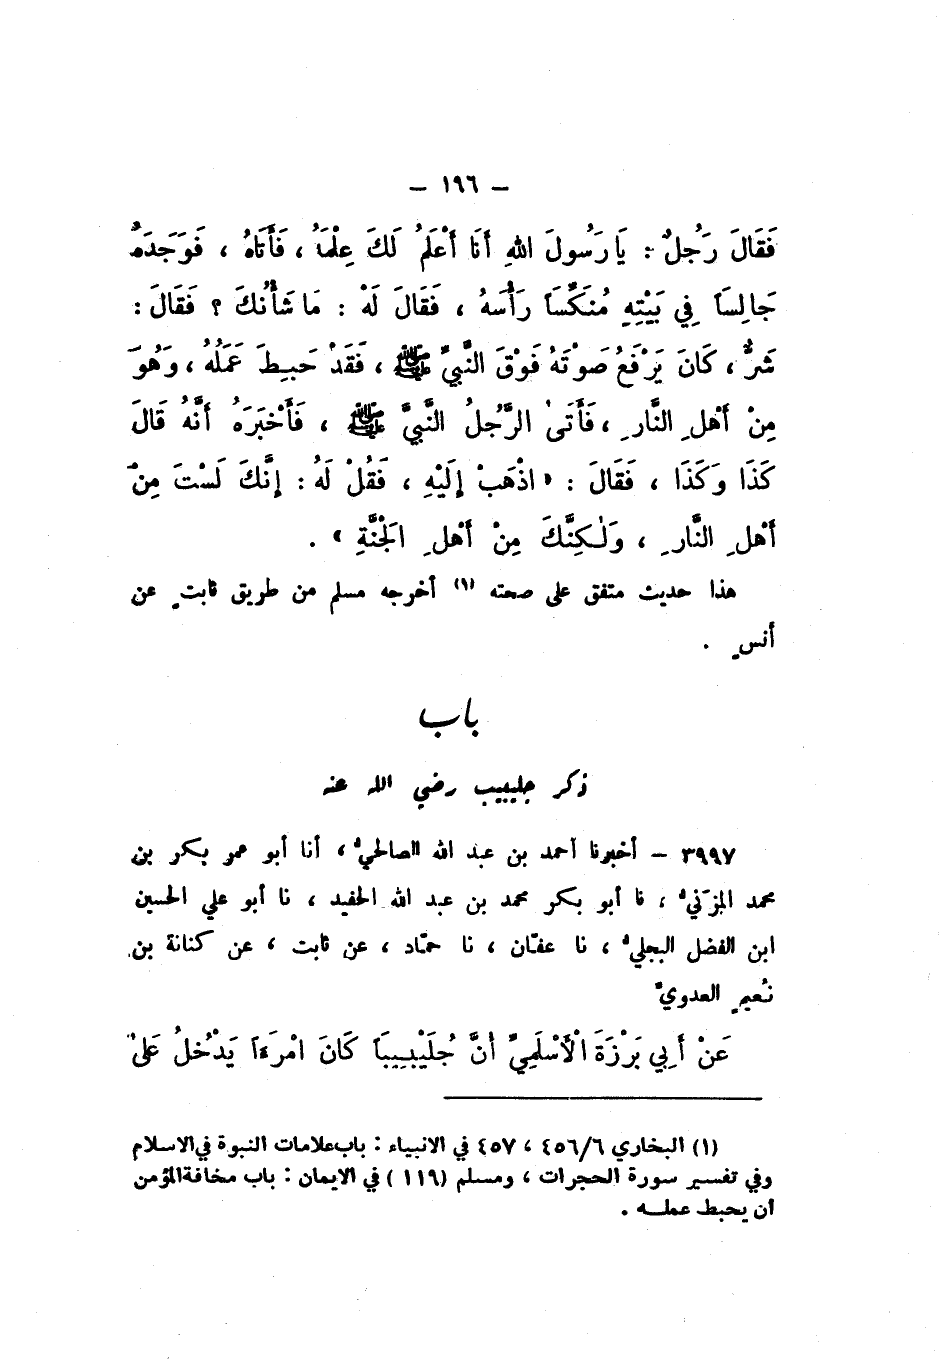 – ١٩٦ –
فَقَالَ رَجُلٌ : يَا رَسُولَ اللهِ أَنَا أَعْلَمُ لَكَ عِلْمَهُ ، فَأَتَاهُ ، فَوَجَدَهُ
جَالِسًا فِي بَيْتِهِ مُنَكِّسًا رَأْسَهُ ، فَقَالَ لَهُ : مَا شَأْنُكَ ؟ فَقَالَ :
شَرٌّ ، كَانَ يَرْفَعُ صَوْتَهُ فَوْقَ النَّبِيِّ ﷺ ، فَقَدْ حَبِطَ عَمَلُهُ ، وَهُوَ
مِنْ أَهْلِ النَّارِ ، فَأَتَى الرَّجُلُ النَّبِيَّ ﷺ ، فَأَخْبَرَهُ أَنَّهُ قَالَ
كَذَا وَكَذَا ، فَقَالَ : « اذْهَبْ إِلَيْهِ ، فَقُلْ لَهُ : إِنَّكَ لَسْتَ مِنْ
أَهْلِ النَّارِ ، وَلٰكِنَّكَ مِنْ أَهْلِ الْجَنَّةِ » .
هذا حديث متفق على صحته (١) أخرجه مسلم من طريق ثابتٍ عن
أنسٍ .
باب
ذكر جليبيب رضي الله عنه
٣٩٩٧ – أخبرنا أحمد بن عبد الله الصالحيُّ ، أنا أبو عمر بكر بن
محمد المزَنيُّ ، نا أبو بكر محمد بن عبد الله الحفيد ، نا أبو علي الحسين
ابن الفضل البجليُّ ، نا عفّان ، نا حمّاد ، عن ثابت ، عن كنانة بن
نُعيمٍ العدويِّ
عَنْ أَبِي بَرْزَةَ الْأَسْلَمِيِّ أَنَّ جُلَيْبِيبًا كَانَ امْرَءًا يَدْخُلُ عَلَى
(١) البخاري ٤٥٦/٦ ، ٤٥٧ في الانبياء : باب علامات النبوة في الاسلام
وفي تفسير سورة الحجرات ، ومسلم (١١٩ ) في الايمان : باب مخافة المؤمن
أن يحبط عمله .